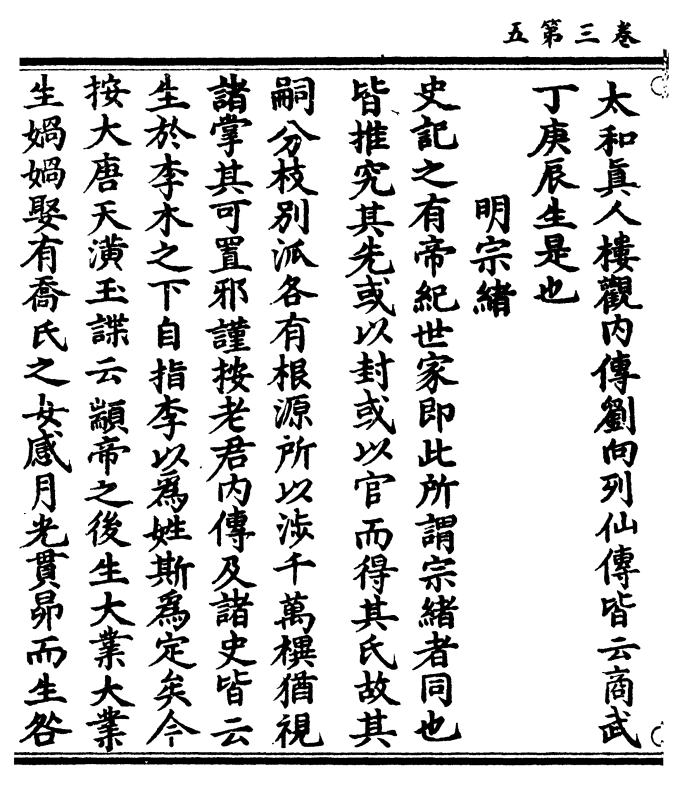 卷三第五
太和眞人樓觀內傳劉向列仙傳皆云商武
丁庚辰生是也
明宗緖
史記之有帝紀世家即此所謂宗緖者同也
皆推究其先或以封或以官而得其氏故其
嗣分枝別派各有根源所以涉千萬禩猶視
諸掌其可置邪謹按老君內傳及諸史皆云
生於李木之下自指李以爲姓斯爲定矣今
按大唐天潢玉諜云顓帝之後生大業大業
生媧媧娶有喬氏之女感月光貫昴而生咎